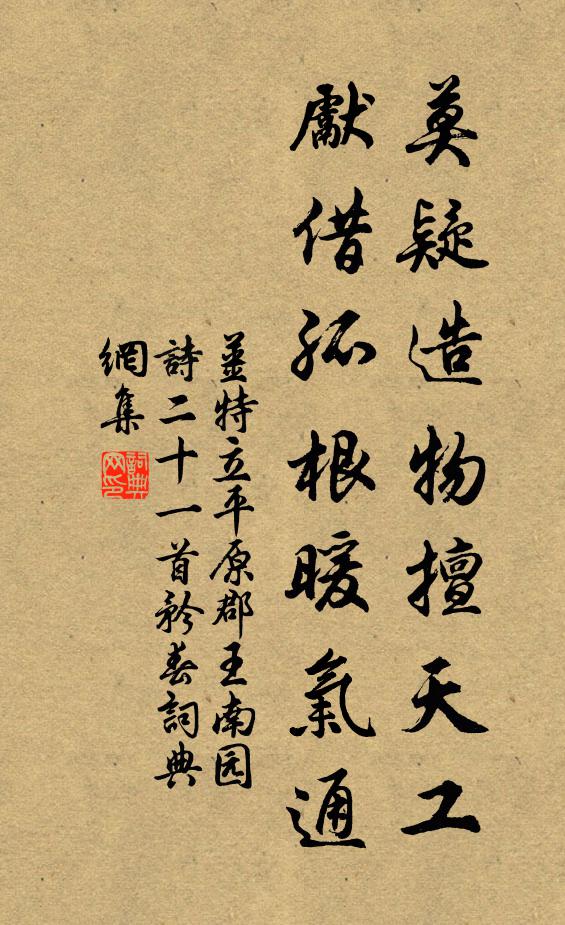 莫疑造物擅天工
獻借孤根暖氣通
薑特立平原郡王南园
詩二十一首矜春詞典
網集
詞典
网印